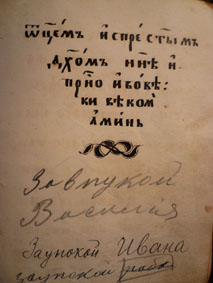 ѿцемъ и спрестымъ
дхомъ ннѣ и
прно ивовѣ:
ки вѣкомъ
аминь
За внукой
Василия
Заупокой Ивана
заупокой